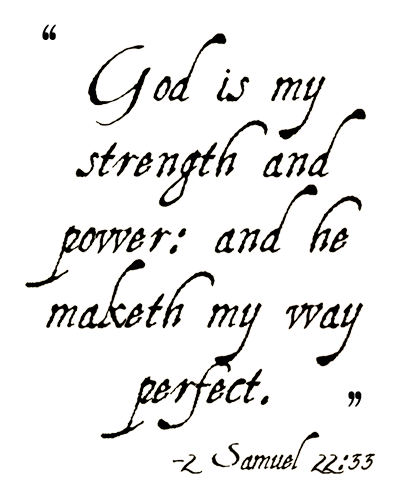 “
God is my
strength and
power: and he
maketh my way
perfect. ”
-2 Samuel 22:33